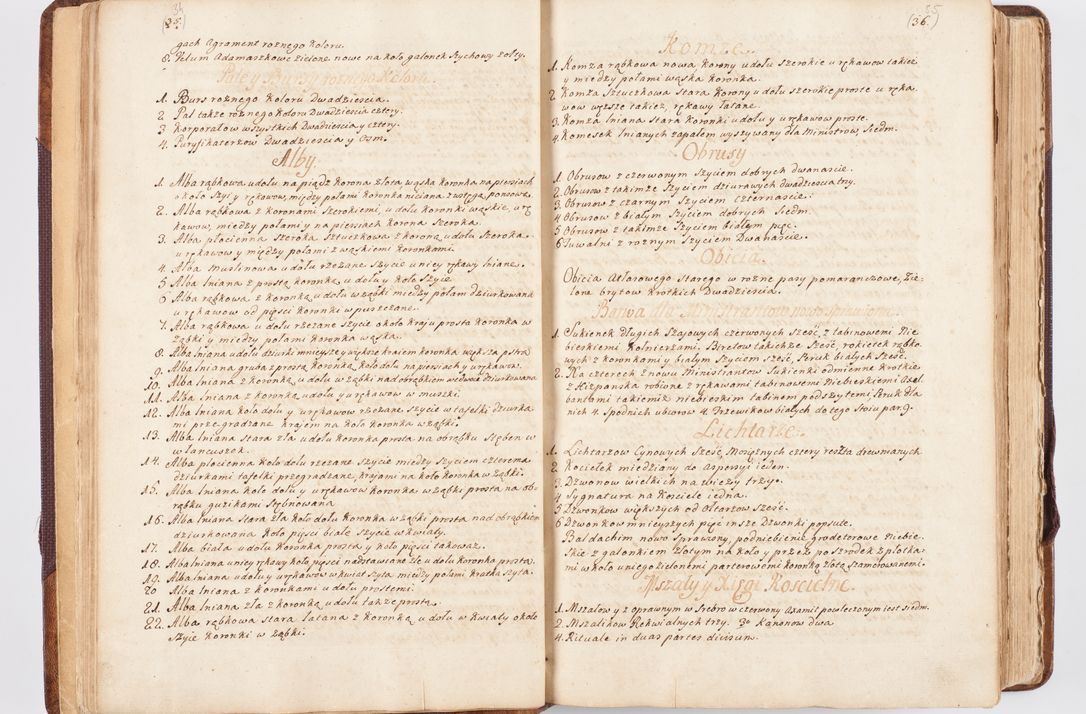 34
(35.)
gach Agrament roznego Koloru.
8. Velum Adamaszkowe zielone nowe na koło galonek Szychowy żołty.
Pale y Bursy roznego Koloru.
1. Burs roznego Koloru Dwadziescia.
2 Pal także roznego Koloru Dwadziescia cztery.
3 Korporałow wszystkich Dwadziescia y cztery.
4. Puryfikaterzow Dwadziescia y Osm.
Alby.
1. Alba rąbkowa u dołu na piądz korona złota, wąska koronka na piersiach
około szyi y rękawow, między połami koronka niciana wstęga ponsowa.
2. Alba rąbkowa z koronami szerokiemi, u dołu koronki wąskie, u rę
kawow, między połami y na piersiach korona szeroka.
3. Alba płocienna szeroka sztuczkowa z koroną u dołu szeroka
u rękawow y między połami z wąskiemi koronkami.
4. Alba muslinowa u dołu rzezane szycie u niey rękawy lniane.
5 Alba lniana z prostą koronką u dołu y koło szyie
6 Alba rąbkowa z koronką u dołu w ząbki między połam dziurkowana
u rękawow od pięsci koronki w purzezane.
7. Alba rąbkowa u dołu rzezane szycie około kraju prosta koronka w
ząbki y między połami koronka wąska.
8. Alba lniana u dołu dziurki mnieysze y większe kraiem koronka większa pstra
9. Alba lniana gruba z prostą koronką koło dołu na piersiach y u rękawow.
10. Alba lniana z koronką u dołu w ząbki nad obrąbkiem wedwoch dziurkowana
11. Alba lniana z koronką u dołu y u rękawow w muszki.
12. Alba lniana koło dołu y u rękawow rżezane szycie w tafelki dziurka
mi przegradzane krajem na koło koronka w ząbki.
13. Alba lniana stara zła u dołu koronka prosta na obrąbku stęben w
w łancuszek.
14. Alba płocienna koło dołu rzezane szycie między szyciem czterema
dziurkami tafelki przegradzane, krajem na koło koronka w ząbki.
15. Alba lniana koło dołu y u rękawow koronka w ząbki prosta na ob
rąbku guzikami stębnowana
16. Alba lniana stara zła koło dołu koronka w ząbki prosta nad obrąbkiem
dziurkowana koło pięsci białe szycie w kwiaty.
17. Alba biała u dołu koronka prosta y koło pięsci takowaz.
18. Alba lniana u niey rękawy koło pięsci nadstawiane złe u dołu koronka prosta
19. Alba lniana u dołu y u rękawow w kwiat szyta między połami kratka szyta.
20 Alba lniana z koronkami u dołu prostemi.
21. Alba lniana zła z koronką u dołu także prosta.
22. Alba rąbkowa stara łatana z koronką u dołu w kwiaty około
szyie koronki w ząbki.
35
(36.)
Komże.
1. Komża rąbkowa nowa korony u dołu szerokie u rękawow takież
y między połami wąska koronka.
2 Komża sztuczkowa stara korony u dołu szerokie proste u ręka
wow węższe takież, rękawy łatane.
3. Komża lniana stara koronki u dołu y u rękawow proste.
4. Komeżek lnianych zapałem wyszywany dla Ministrow, siedm.
Obrusy
1. Obrusow z czerwonym szyciem dobrych dwanascie.
2. Obrusow z takimże szyciem dziurawych dwadziescia trzy.
3. Obrusow z czarnym szyciem czternascie.
4 Obrusow z białym szyciem dobrych siedm.
5 Obrusow z takimże szyciem białym pięc.
6 Tuwalni z roznym szyciem Dwanascie.
Obicia.
Obicia Ałtarowego starego w rozne pasy pomaranczowe, Zie-
lone brytow krotkich Dwadziescia.
Barwa dla Ministrantow nowo sprawiona.
1. Sukienek długich szajowych czerwonych szesć z tabinowemi nie
bieskiemi kołnierzami. Biretow takichże szesć, rokietek rąbko
wych z koronkami y białym szyciem szesć, Peruk białych szesć.
2. Na czterech znowu Ministrantow sukienki odmienne krotkie
z Hizpanska robione z rękawami tabinowemi niebieskiemi Axel
bantami takiemiż niebieskim tabinem podszytemi, Peruk dla
nich 4. spodnich ubiorow 4. Trzewikow białych do tego stroiu par 9.
Lichtarze.
1. Lichtarzow Cynowych szesć, Mosiężnych cztery reszta drewnianych.
2. Kociełek miedziany do Aspersyi ieden.
3. Dzwonow wielkich na wieży trzy.
4 Sygnatura na Kosciele iedna.
5 Dzwonkow większych od Ołtarzow szesć.
6 Dzwonkow mnieyszych pięc insze Dzwonki popsute.
Baldachim nowo sprawiony, podniebienie grodetorowe niebie-
skie z galonkiem złotym na koło y przez po szrodek z plotka-
mi w koło u niego zielonemi parterowemi koronką złotą szamerowanemi.
Mszały y Xięgi Koscielne.
1. Mszałow y z oprawnym w srebro w czerwony axamit powleczonym iest siedm.
2. Mszalikow Rekwialnych trzy. 3o Kanonow dwa
4. Rituale in duas partes divisum.